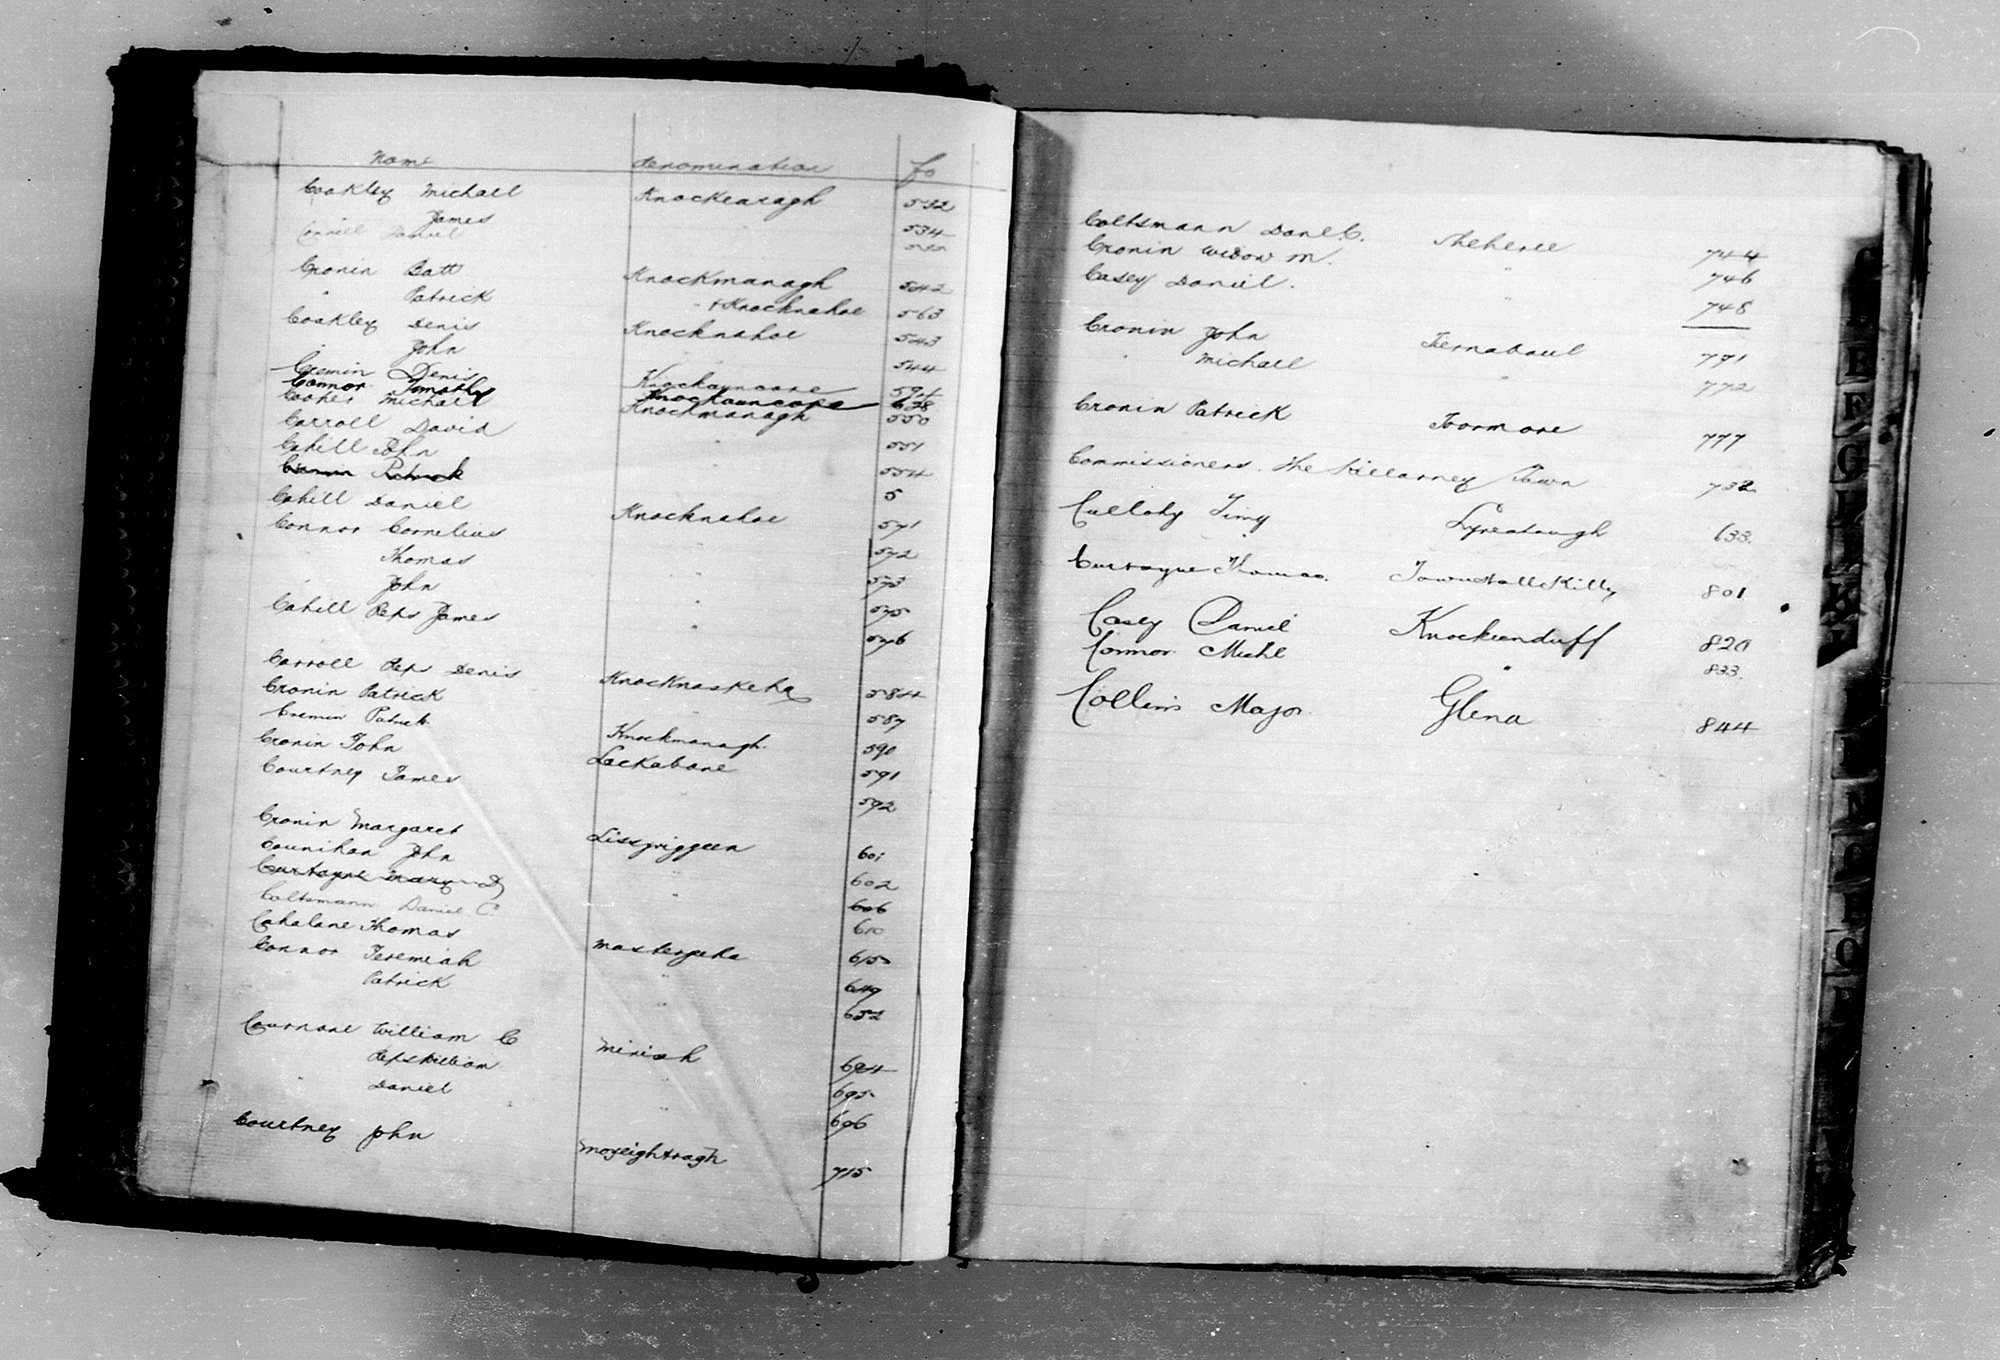 Name denomination fo
Coakley Michael Knockearagh 532
James 534
Connell Daniel
Cronin Batt Knockmanagh 542
" Patrick " + Knocknahoe 563
Coakley Denis Knocknahoe 543
John 544
Cremin Denis 594
Connor Timothy Knockauncore 638
Michael Knockmanagh 550
Carroll David " 551
Cahill John " 554
Patrick 5
Cahill Daniel Knocknahoe 571
Connor Cornelius " 572
Thomas " 573
John " 575
Cahill Reps James " 576
Carroll Reps Denis Knocknaskeha 584
Cronin Patrick 587
Cremin Patrick Knockmanagh 590
Cronin John Lackabane 591
Courtney James 592
Cronin Margaret Lissyviggeen 601
Counihan John " 602
Curtayne Mary D " 606
Coltsmann Daniel C. 610
Cahalane Thomas Mastergeha 615
Connor Jeremiah " 649
Patrick " 652
Cournane William C Minish 694
Reps William " 695
" Daniel " 696
Courtney John Moyeightragh 715
Coltsmann Danl C. Sheheree 744
Cronin Widow M. " 746
Casey Daniel. " 748
Cronin John Tiernaboul 771
" Michael " 772
Cronin Patrick Toormore 777
Commissioners. The Killarney Town 732
Culloty Timy Lyreatough 633.
Curtayne Thomas. Townshall Killy 801
Casey Daniel Knockenduff 820
Connor Michl " 833.
Collins Major Glena 844